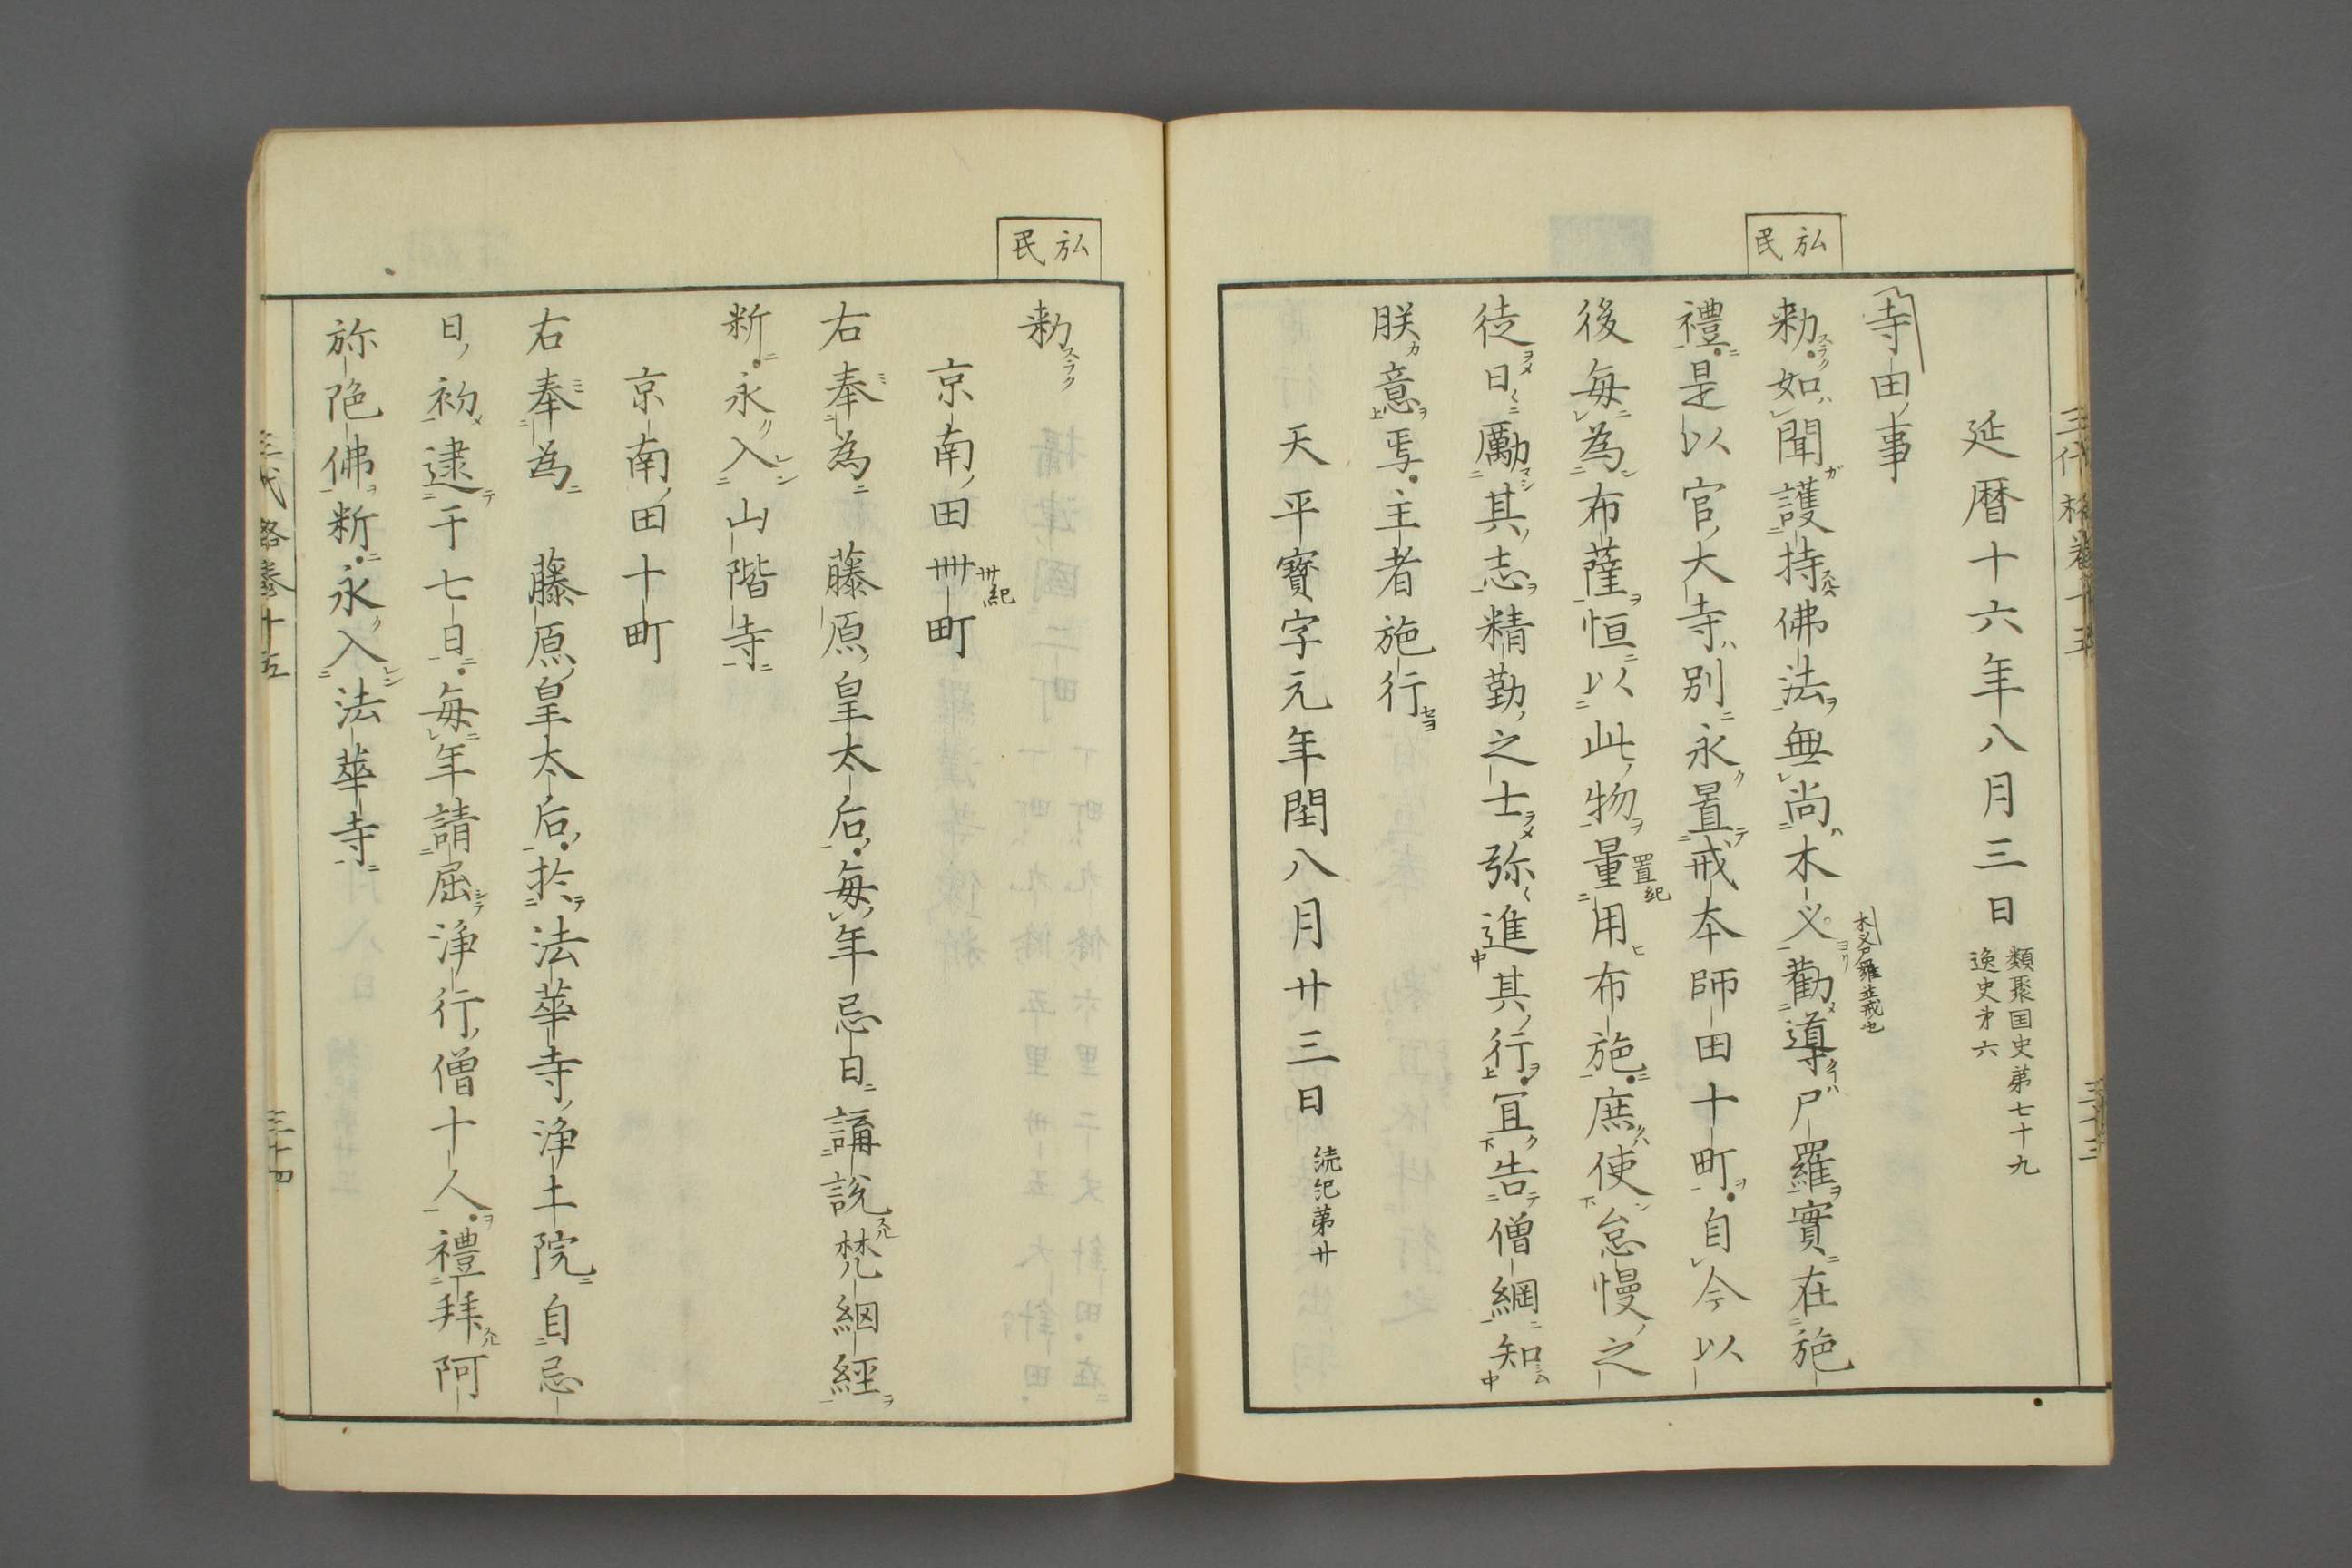 三代格巻十五
三十三
弘民
延暦十六年八月三日 類聚国史第七十九
逸史才六
寺田事
勅如聞護持佛法無尚木叉勸導尸羅實在施
木叉尸羅並戒也
禮是以官大寺別永置戒本師田十町自今以
後毎為布薩恒以此物量用布施庶使怠慢之
置紀
徒日〻勵其志精勤之士弥〻進其行冝告僧綱知
朕意焉主者施行
天平寶字元年閏八月廿三日 続紀第廿
弘民
勅
京南田卌町
卅紀
右奉為 藤原皇太后毎年忌日講説梵網經
料永入山階寺
京南田十町
右奉為 藤原皇太后於法華寺浄土院自忌
日初逮于七日毎年請屈浄行僧十人禮拜阿
弥陁佛料永入法華寺
三代格巻十五
三十四